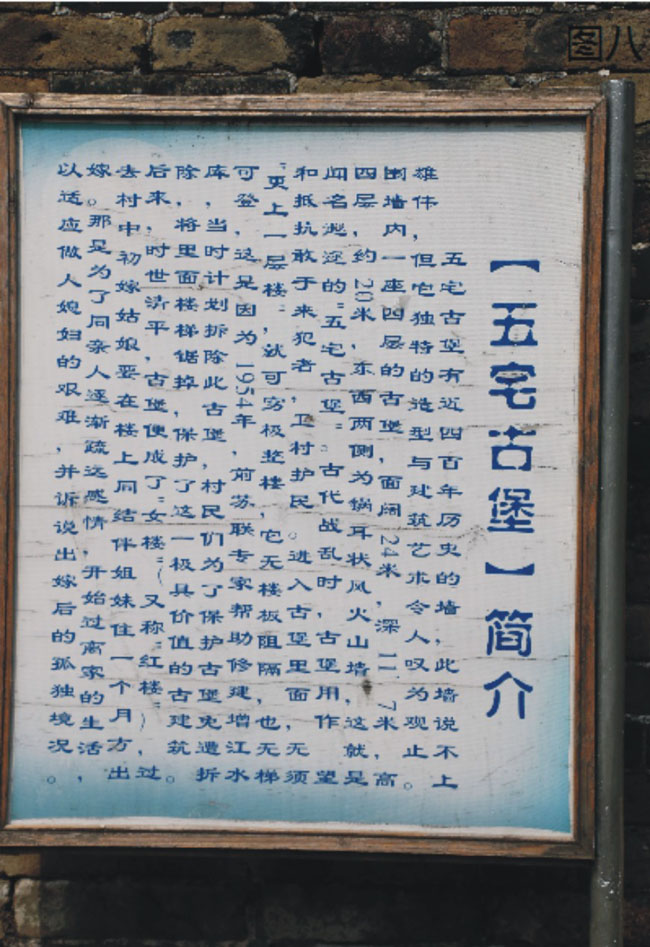 图八
【五宅古堡】简介
五宅古堡有近四百年历史的墙，此墙说不上
雄伟，但它独特的造型与建筑艺术令人叹为观止。
围墙内，一座四层的古堡，面阔24米，深11.7米，高
四层，约20米，东西两侧为锅耳状风火山墙，这就是
闻名遐迩的“五宅古堡”。古代战乱时，古堡用作望
和抵抗敢于来犯者，卫村护民。进入古堡里面，无须
“更上一层楼”，就可穷极整楼，它无楼板阻隔，也无梯
可登，这是因为1954年，前苏联专家帮助修建增江水
库，当时计划拆除此古堡，村民们为了保护古堡免遭拆
除，将里面楼梯锯掉，保护了这一极具价值的古建筑。
后来，时世清平，古堡便成了“女楼”（又称“红楼”），过
去村中初嫁姑娘要在楼上同结伴姐妹住一个月方出
嫁。那是为了同亲人逐渐疏远感情，开始过离家的生活，
以适应做人媳妇的艰难，并诉说出嫁后的孤独境况。